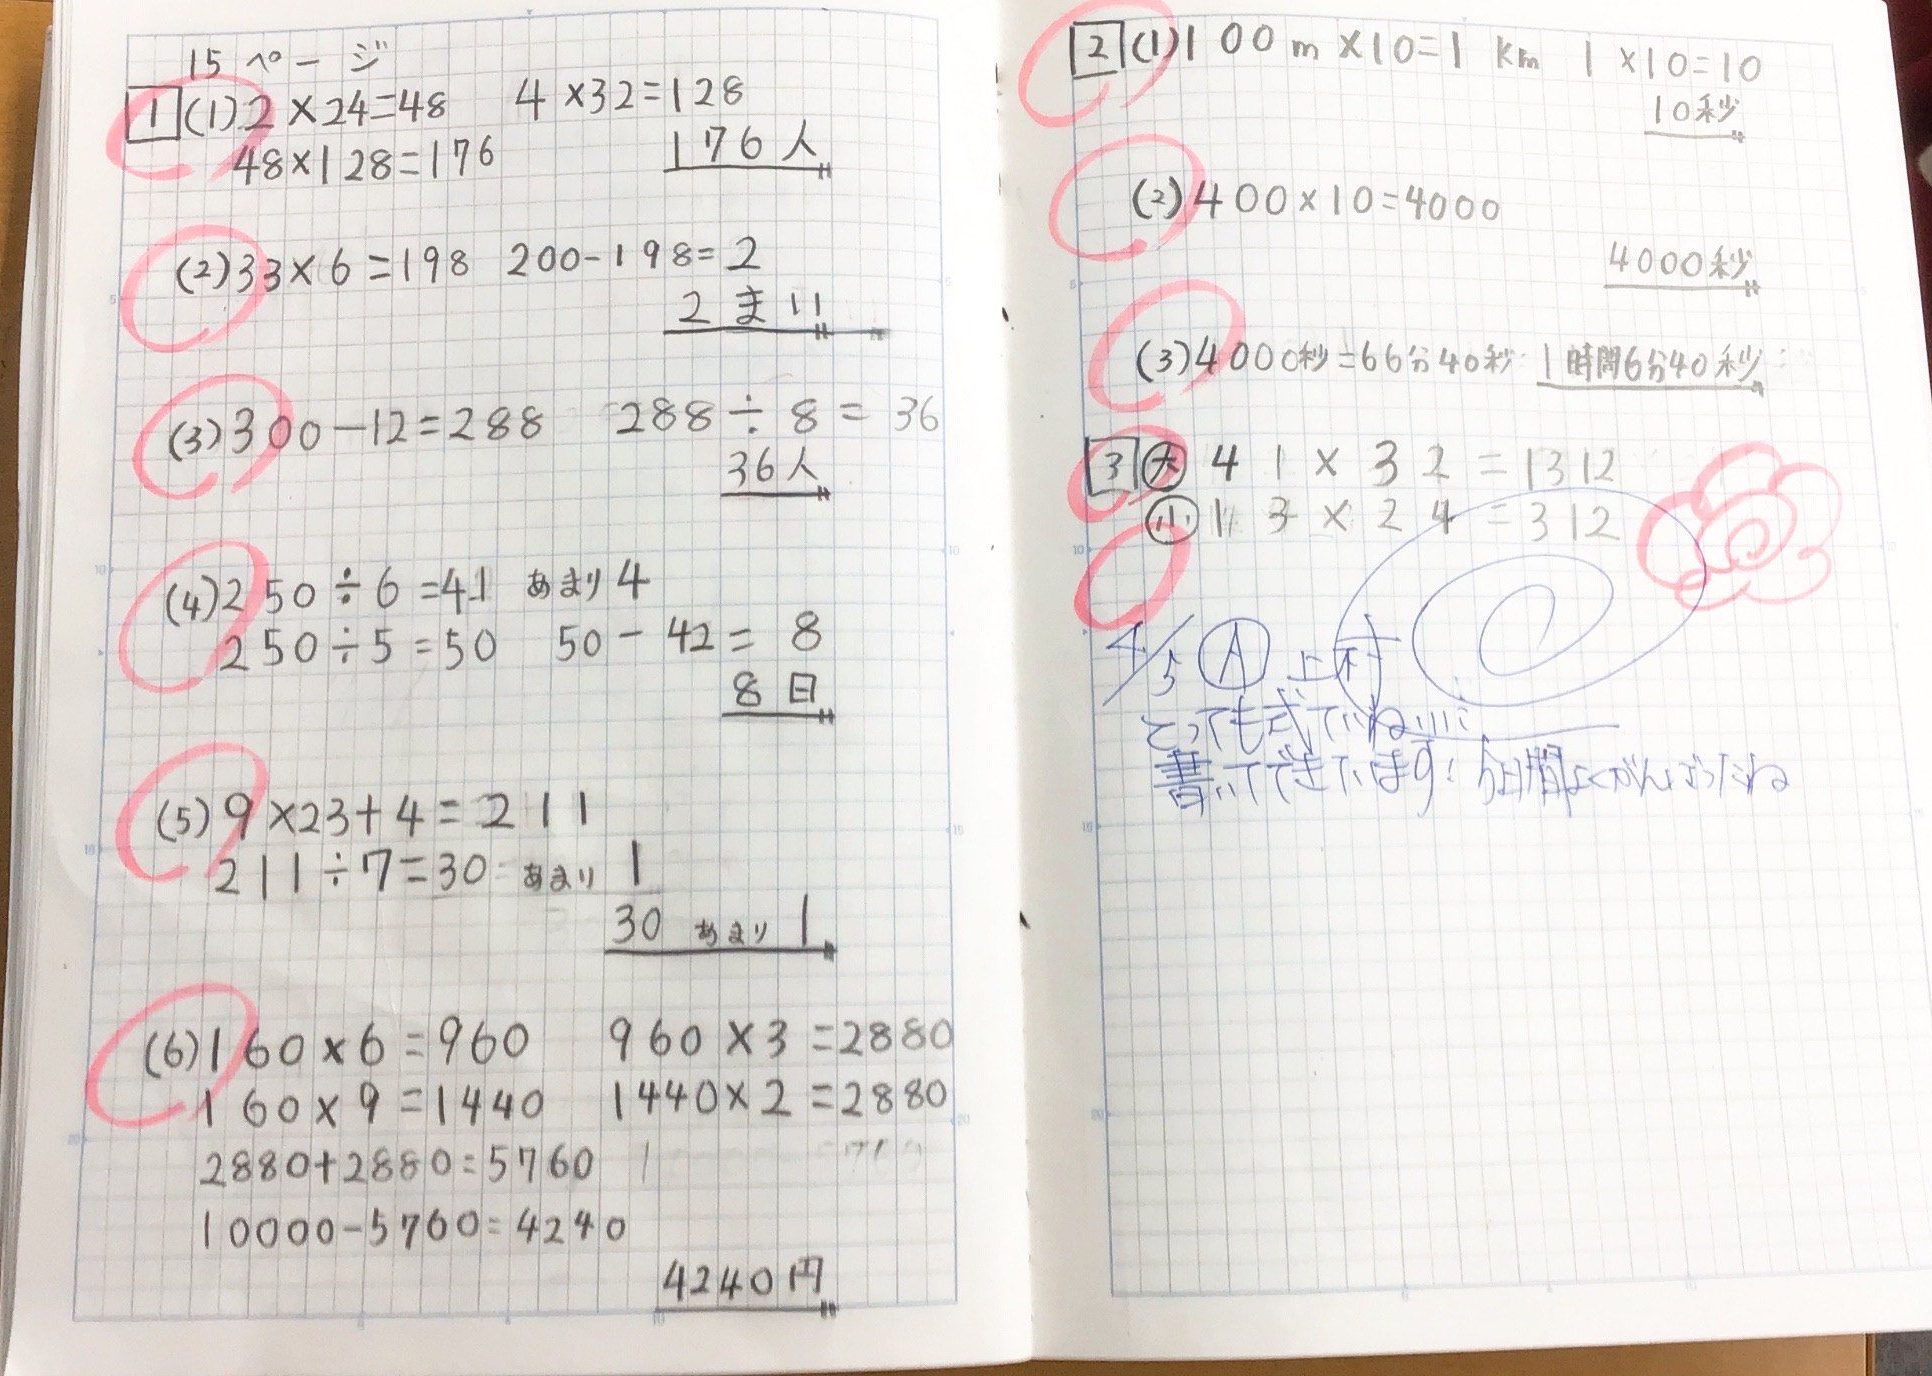 15ページ
1 (1) 2×24=48 4×32=128
48×128=176 176人
(2) 33×6=198 200-198=2
2まい
(3) 300-12=288 288÷8=36
36人
(4) 250÷6=41 あまり4
250÷5=50 50-42=8
8日
(5) 9×23+4=211
211÷7=30 あまり 1
30 あまり 1
(6) 160×6=960 960×3=2880
160×9=1440 1440×2=2880
2880+2880=5760
10000-5760=4240
4240円
2 (1) 100m×10=1km 1×10=10
10秒
(2) 400×10=4000
4000秒
(3) 4000秒=66分40秒 1時間6分40秒
3 大 41×32=1312
小 13×24=312
4/5 A 上村
とっても式ていねいに
書いてできています! 毎日よくがんばったね